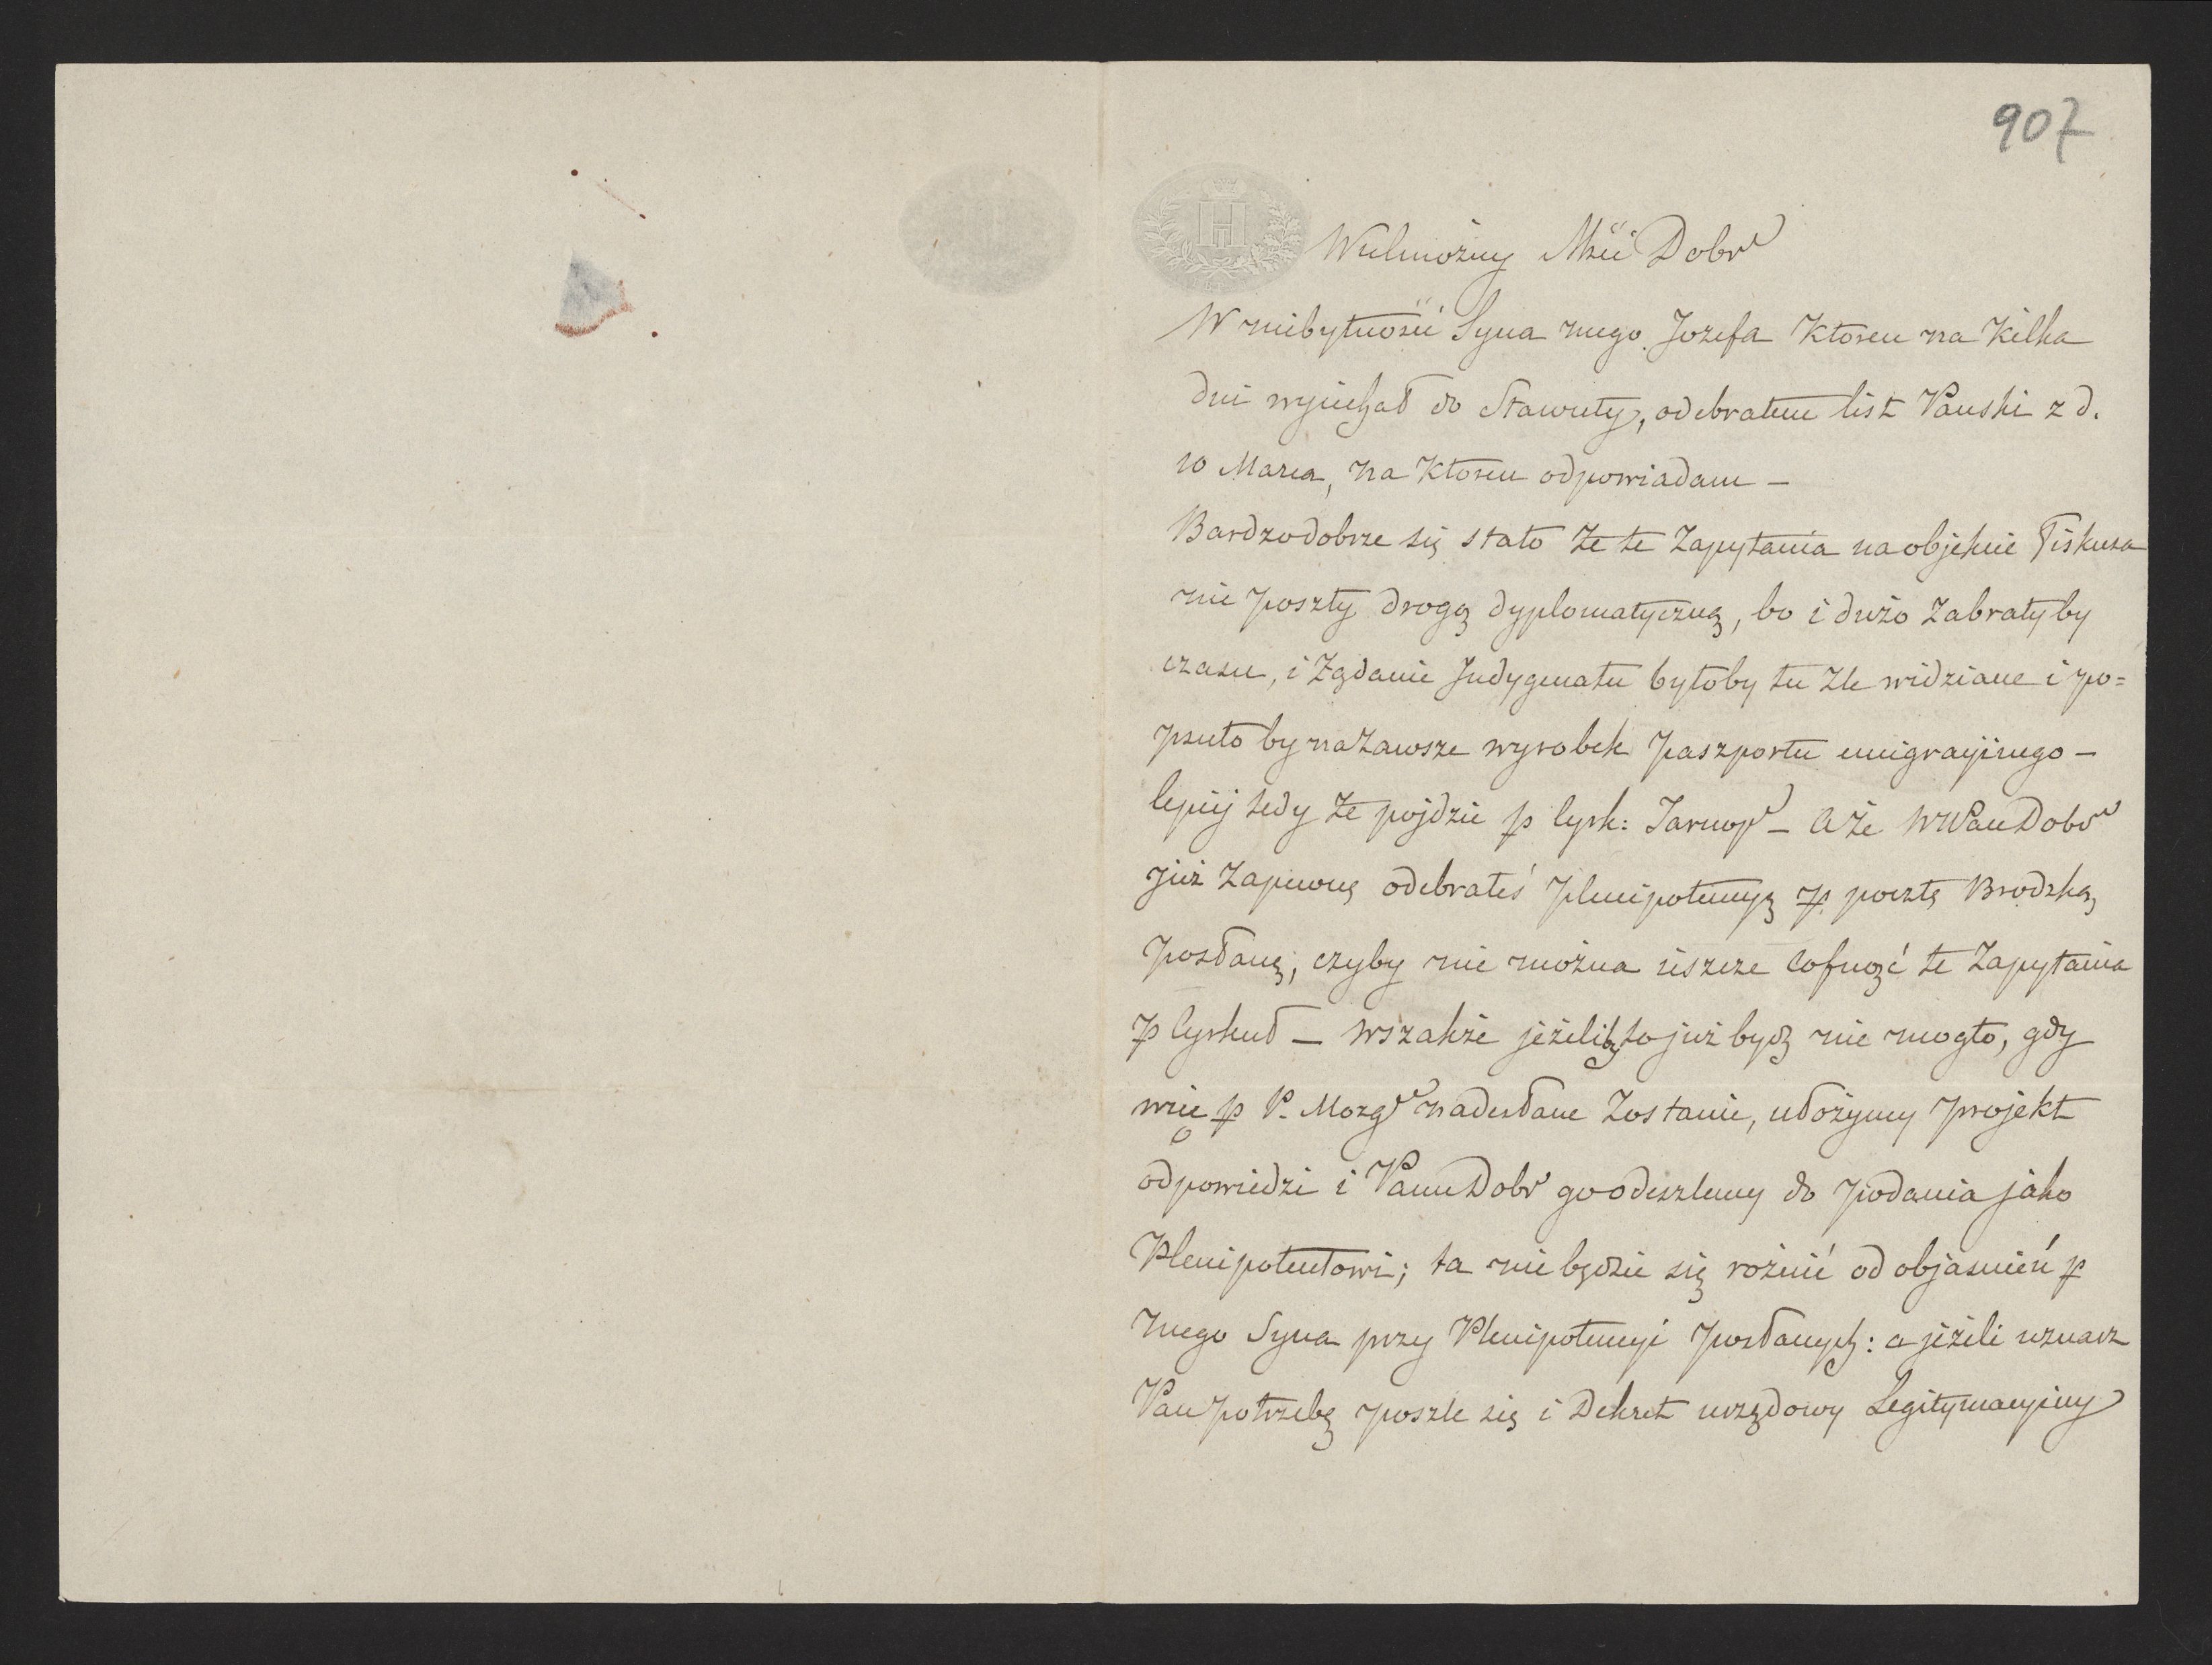 907
H
Wielmożny Mści Dobr
W niebytności Syna mego Jozefa Ktoren na Kilka
dni wyiechał do Sławuty, odebrałem list Pański z d.
10 Marca, na Ktoren odpowiadam —
Bardzo dobrze się stało że te Zapytania na objekcie Fiskusa
nie poszły drogą dyplomatyczną, bo i dużo Zabrałyby
czasu, i Żądanie Indygenatu byłoby tu źle widziane i po=
psuło by na Zawsze wyrobek paszportu emigracyjnego —
lepiej tedy że pojdzie p Cyrk: Tarnop — a że WWPan Dobr
już Zapewnę odebrałeś plenipotencyą p pocztę Brodzką
posłaną, czyby nie można ieszcze Cofnąć te Zapytania
p Cyrkuł — wszakże jeżeliby to już bydź nie mogło, gdy
mię p P. Mozg nadesłane Zostanie, ułożymy projekt
odpowiedzi i Panu Dobr go odeszlemy do podania jako
Plenipotentowi; ta nie będzie się rożnić od objaśnień p
mego Syna przy Plenipotencyi posłanych: a jeżeli uznasz
Pan potrzebę poszle się i Dekret urzędowy Legitymacyiny